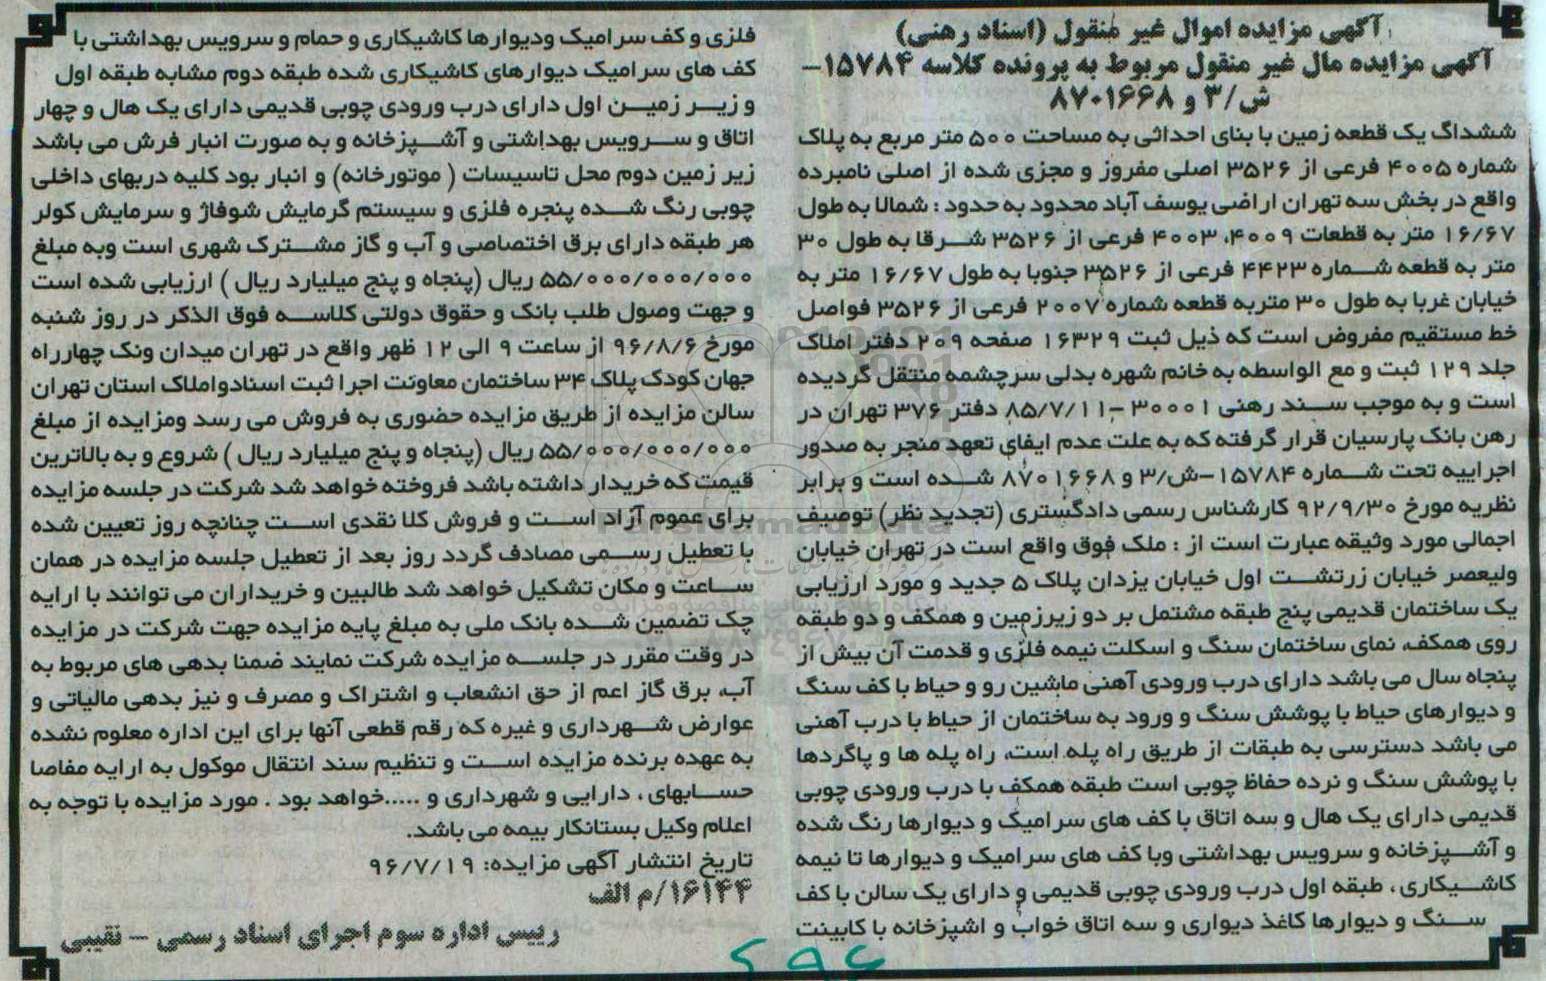 آگهی مزایده اموال غیر منقول (اسناد رهنی)
آگهی مزایده مال غیر منقول مربوط به پرونده کلاسه ۱۵۷۸۴–
ش/۳ و ۸۷۰۱۶۶۸
ششداگ یک قطعه زمین با بنای احداثی به مساحت ۵۰۰ متر مربع به پلاک
شماره ۴۰۰۵ فرعی از ۳۵۲۶ اصلی مفروز و مجزی شده از اصلی نامبرده
واقع در بخش سه تهران اراضی یوسف آباد محدود به حدود : شمالا به طول
۱۶/۶۷ متر به قطعات ۴۰۰۹، ۴۰۰۳ فرعی از ۳۵۲۶ شرقا به طول ۳۰
متر به قطعه شماره ۴۴۲۳ فرعی از ۳۵۲۶ جنوبا به طول ۱۶/۶۷ متر به
خیابان غربا به طول ۳۰ متربه قطعه شماره ۲۰۰۷ فرعی از ۳۵۲۶ فواصل
خط مستقیم مفروض است که ذیل ثبت ۱۶۳۲۹ صفحه ۲۰۹ دفتر املاک
جلد ۱۲۹ ثبت و مع الواسطه به خانم شهره بدلی سرچشمه منتقل گردیده
است و به موجب سند رهنی ۳۰۰۰۱ –۸۵/۷/۱۱ دفتر ۳۷۶ تهران در
رهن بانک پارسیان قرار گرفته که به علت عدم ایفای تعهد منجر به صدور
اجراییه تحت شماره ۱۵۷۸۴–ش/۳ و ۸۷۰۱۶۶۸ شده است و برابر
نظریه مورخ ۹۲/۹/۳۰ کارشناس رسمی دادگستری (تجدید نظر) توصیف
اجمالی مورد وثیقه عبارت است از : ملک فوق واقع است در تهران خیابان
ولیعصر خیابان زرتشت اول خیابان یزدان پلاک ۵ جدید و مورد ارزیابی
یک ساختمان قدیمی پنج طبقه مشتمل بر دو زیرزمین و همکف و دو طبقه
روی همکف، نمای ساختمان سنگ و اسکلت نیمه فلزی و قدمت آن بیش از
پنجاه سال می باشد دارای درب ورودی آهنی ماشین رو و حیاط با کف سنگ
و دیوارهای حیاط با پوشش سنگ و ورود به ساختمان از حیاط با درب آهنی
می باشد دسترسی به طبقات از طریق راه پله است، راه پله ها و پاگردها
با پوشش سنگ و نرده حفاظ چوبی است طبقه همکف با درب ورودی چوبی
قدیمی دارای یک هال و سه اتاق با کف های سرامیک و دیوارها رنگ شده
و آشپزخانه و سرویس بهداشتی وبا کف های سرامیک و دیوارها تا نیمه
کاشیکاری ، طبقه اول درب ورودی چوبی قدیمی و دارای یک سالن با کف
سنگ و دیوارها کاغذ دیواری و سه اتاق خواب و اشپزخانه با کابینت
فلزی و کف سرامیک ودیوارها کاشیکاری و حمام و سرویس بهداشتی با
کف های سرامیک دیوارهای کاشیکاری شده طبقه دوم مشابه طبقه اول
و زیر زمین اول دارای درب ورودی چوبی قدیمی دارای یک هال و چهار
اتاق و سرویس بهداشتی و آشپزخانه و به صورت انبار فرش می باشد
زیر زمین دوم محل تاسیسات ( موتورخانه) و انبار بود کلیه دربهای داخلی
چوبی رنگ شده پنجره فلزی و سیستم گرمایش شوفاژ و سرمایش کولر
هر طبقه دارای برق اختصاصی و آب و گاز مشترک شهری است وبه مبلغ
۵۵/۰۰۰/۰۰۰/۰۰۰ ریال (پنجاه و پنج میلیارد ریال ) ارزیابی شده است
و جهت وصول طلب بانک و حقوق دولتی کلاسه فوق الذکر در روز شنبه
مورخ ۹۶/۸/۶ از ساعت ۹ الی ۱۲ ظهر واقع در تهران میدان ونک چهارراه
جهان کودک پلاک ۳۴ ساختمان معاونت اجرا ثبت اسنادواملاک استان تهران
سالن مزایده از طریق مزایده حضوری به فروش می رسد ومزایده از مبلغ
۵۵/۰۰۰/۰۰۰/۰۰۰ ریال (پنجاه و پنج میلیارد ریال ) شروع و به بالاترین
قیمت که خریدار داشته باشد فروخته خواهد شد شرکت در جلسه مزایده
برای عموم آزاد است و فروش کلا نقدی است چنانچه روز تعیین شده
با تعطیل رسمی مصادف گردد روز بعد از تعطیل جلسه مزایده در همان
ساعت و مکان تشکیل خواهد شد طالبین و خریداران می توانند با ارایه
چک تضمین شده بانک ملی به مبلغ پایه مزایده جهت شرکت در مزایده
در وقت مقرر در جلسه مزایده شرکت نمایند ضمنا بدهی های مربوط به
آب، برق گاز اعم از حق انشعاب و اشتراک و مصرف و نیز بدهی مالیاتی و
عوارض شهرداری و غیره که رقم قطعی آنها برای این اداره معلوم نشده
به عهده برنده مزایده است و تنظیم سند انتقال موکول به ارایه مفاصا
حسابهای ، دارایی و شهرداری و .....خواهد بود . مورد مزایده با توجه به
اعلام وکیل بستانکار بیمه می باشد.
تاریخ انتشار آگهی مزایده: ۹۶/۷/۱۹
۱۶۱۴۴/م الف
رییس اداره سوم اجرای اسناد رسمی – نقیبی
ParsNamadData